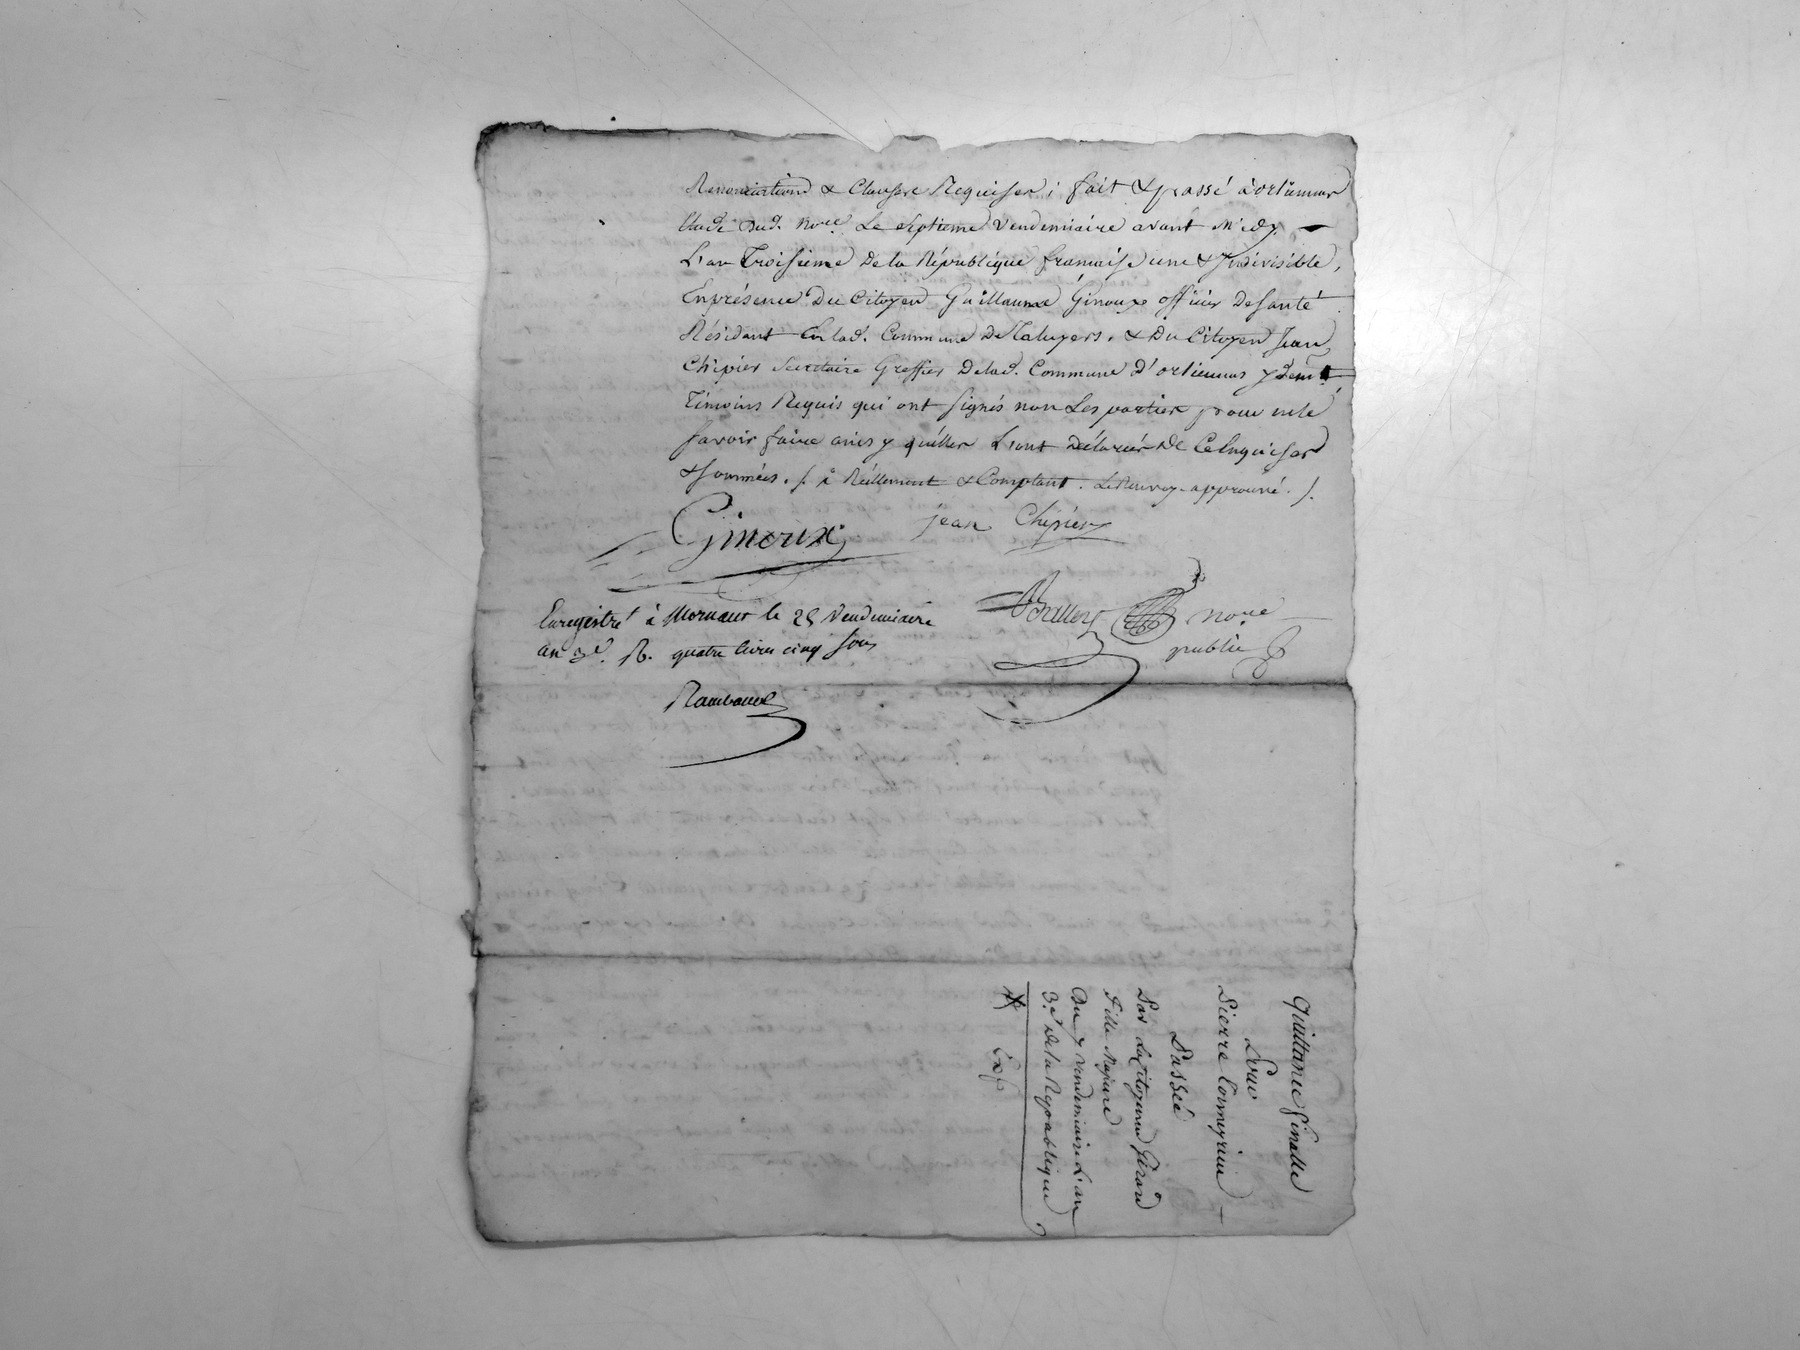 Renonciation & Clausre Requiser ; fait & passé à orliennas
Etude Dud. Nore. Le septieme vendemiaire avant Midy.
L'an Troisieme De la République francaise une & Indivisible,
En présence Du Citoyen Guillaume Ginoux officier De santé
Résidant En lad. Commune De Taluyers, & Du Citoyen Jean
Chipier secretaire Greffier De lad. Commune D'orliennas
Témoins Requis qui ont signés non Les parties pour ne le
savoir faire ainsy qu'elles L'ont déclarées De Ce Enquises
& sommées. /. Réellement & Comptant. Le Renvoy approuvé. /.
Ginoux jean Chipier
Enregistré à Mornant le 25 Vendemiaire
an 3e. R. quatre livres cinq sous
nore
public
Rambaud
quittance finalle
Pour
Pierre
Passée
Par La Citoyenne Girard
Fille Majeure
Du 7 vendemiaire L'an
3.e De la Republique